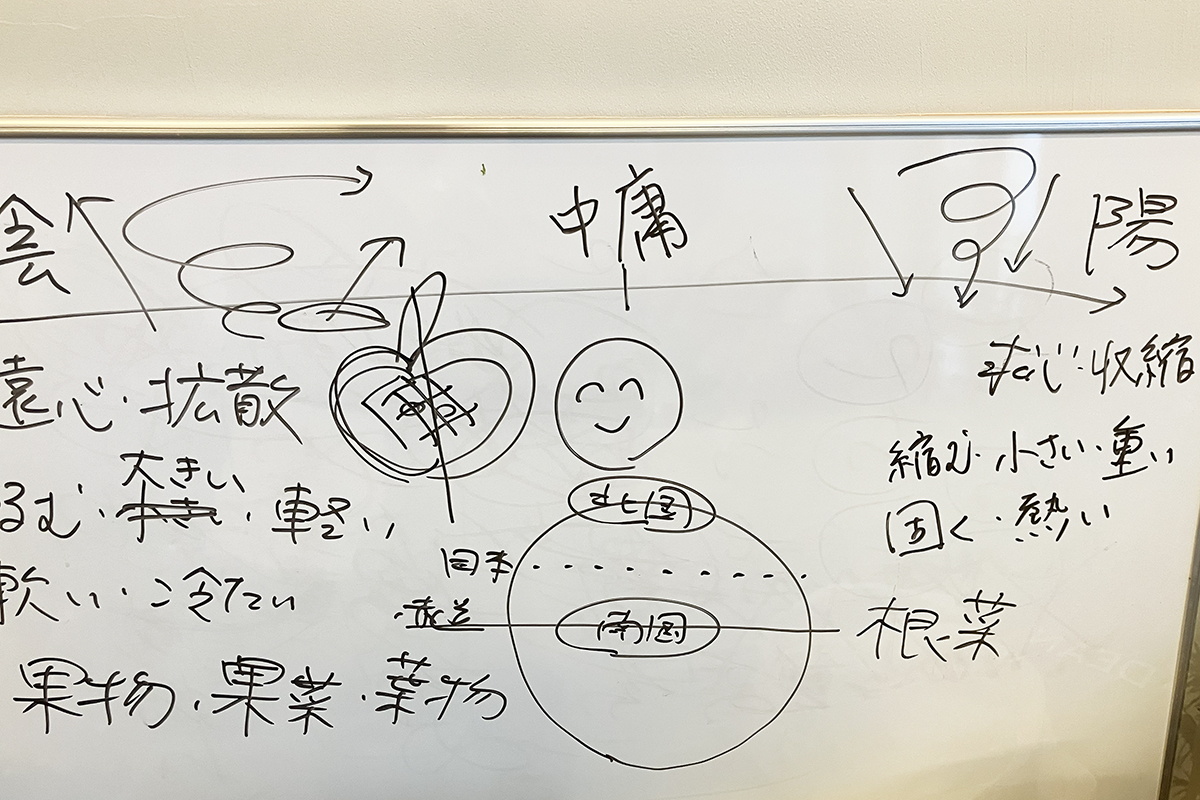 中庸
陽
遠心・拡散
収縮
大きい
るむ・軽い
縮む・小さい・重い
固く・熱い
軟い・冷たい
果物・果菜・葉物
根菜
北国
日本
赤道
南国